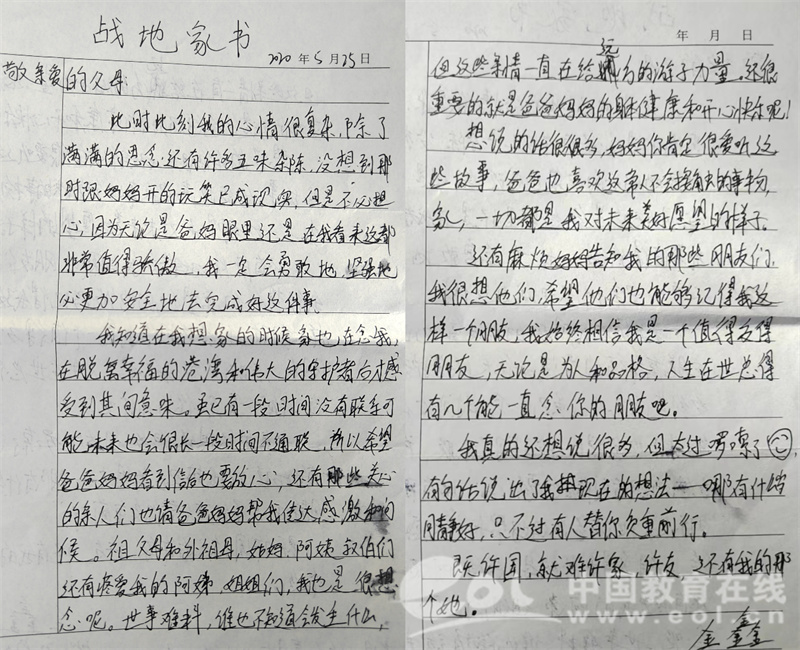 战地家书
2020年5月25日
敬亲爱的父母
此时此刻我的心情很复杂,除了
满满的思念还有许多五味杂陈,没想到那
时跟妈妈开的玩笑已成现实,但是不必担
心,因为无论是爸妈眼里还是在我看来这都
非常值得骄傲,我一定会勇敢地,坚强地
必更加安全地去完成好这件事
我知道在我想家的时候家也在念我,
在脱离幸福的港湾和伟大的守护者后才感
受到其间意味。虽已有一段时间没有联系可
能未来也会很长一段时间不通联,所以希望
爸爸妈妈看到信后也要放心,还有那些关心
的亲人们也请爸爸妈妈帮我传达感激和问
候。祖父母和外祖母,姑姑,阿姨叔伯们
还有疼爱我的阿姨,姐姐们,我也是很想
念呢。世事难料,谁也不知道会发生什么,
年 月 日
但这些亲情一直在给远方的游子力量。还很
重要的就是爸爸妈妈的身体健康和开心快乐呢!
想说的话很很多,妈妈你肯定很爱听这
些故事,爸爸也喜欢这常人不会接触的事物,
家,一切都是我对未来美好愿望的样子。
还有麻烦妈妈告知我的那些朋友们,
我很想他们,希望他们也能够记得我这
样一个朋友,我始终相信我是一个值得交得
朋友,无论是为人和品格,人生在世总得
有几个能一直念你的朋友吧。
我真的还想说很多,但太过啰嗦了
有句话说出了我现在的想法——哪有什么岁
月静好,只不过有人替你负重前行。
既许国,就难许家,许友 还有我的那
个她。
金鑫
中国教育在线
eol
www.eol.cn